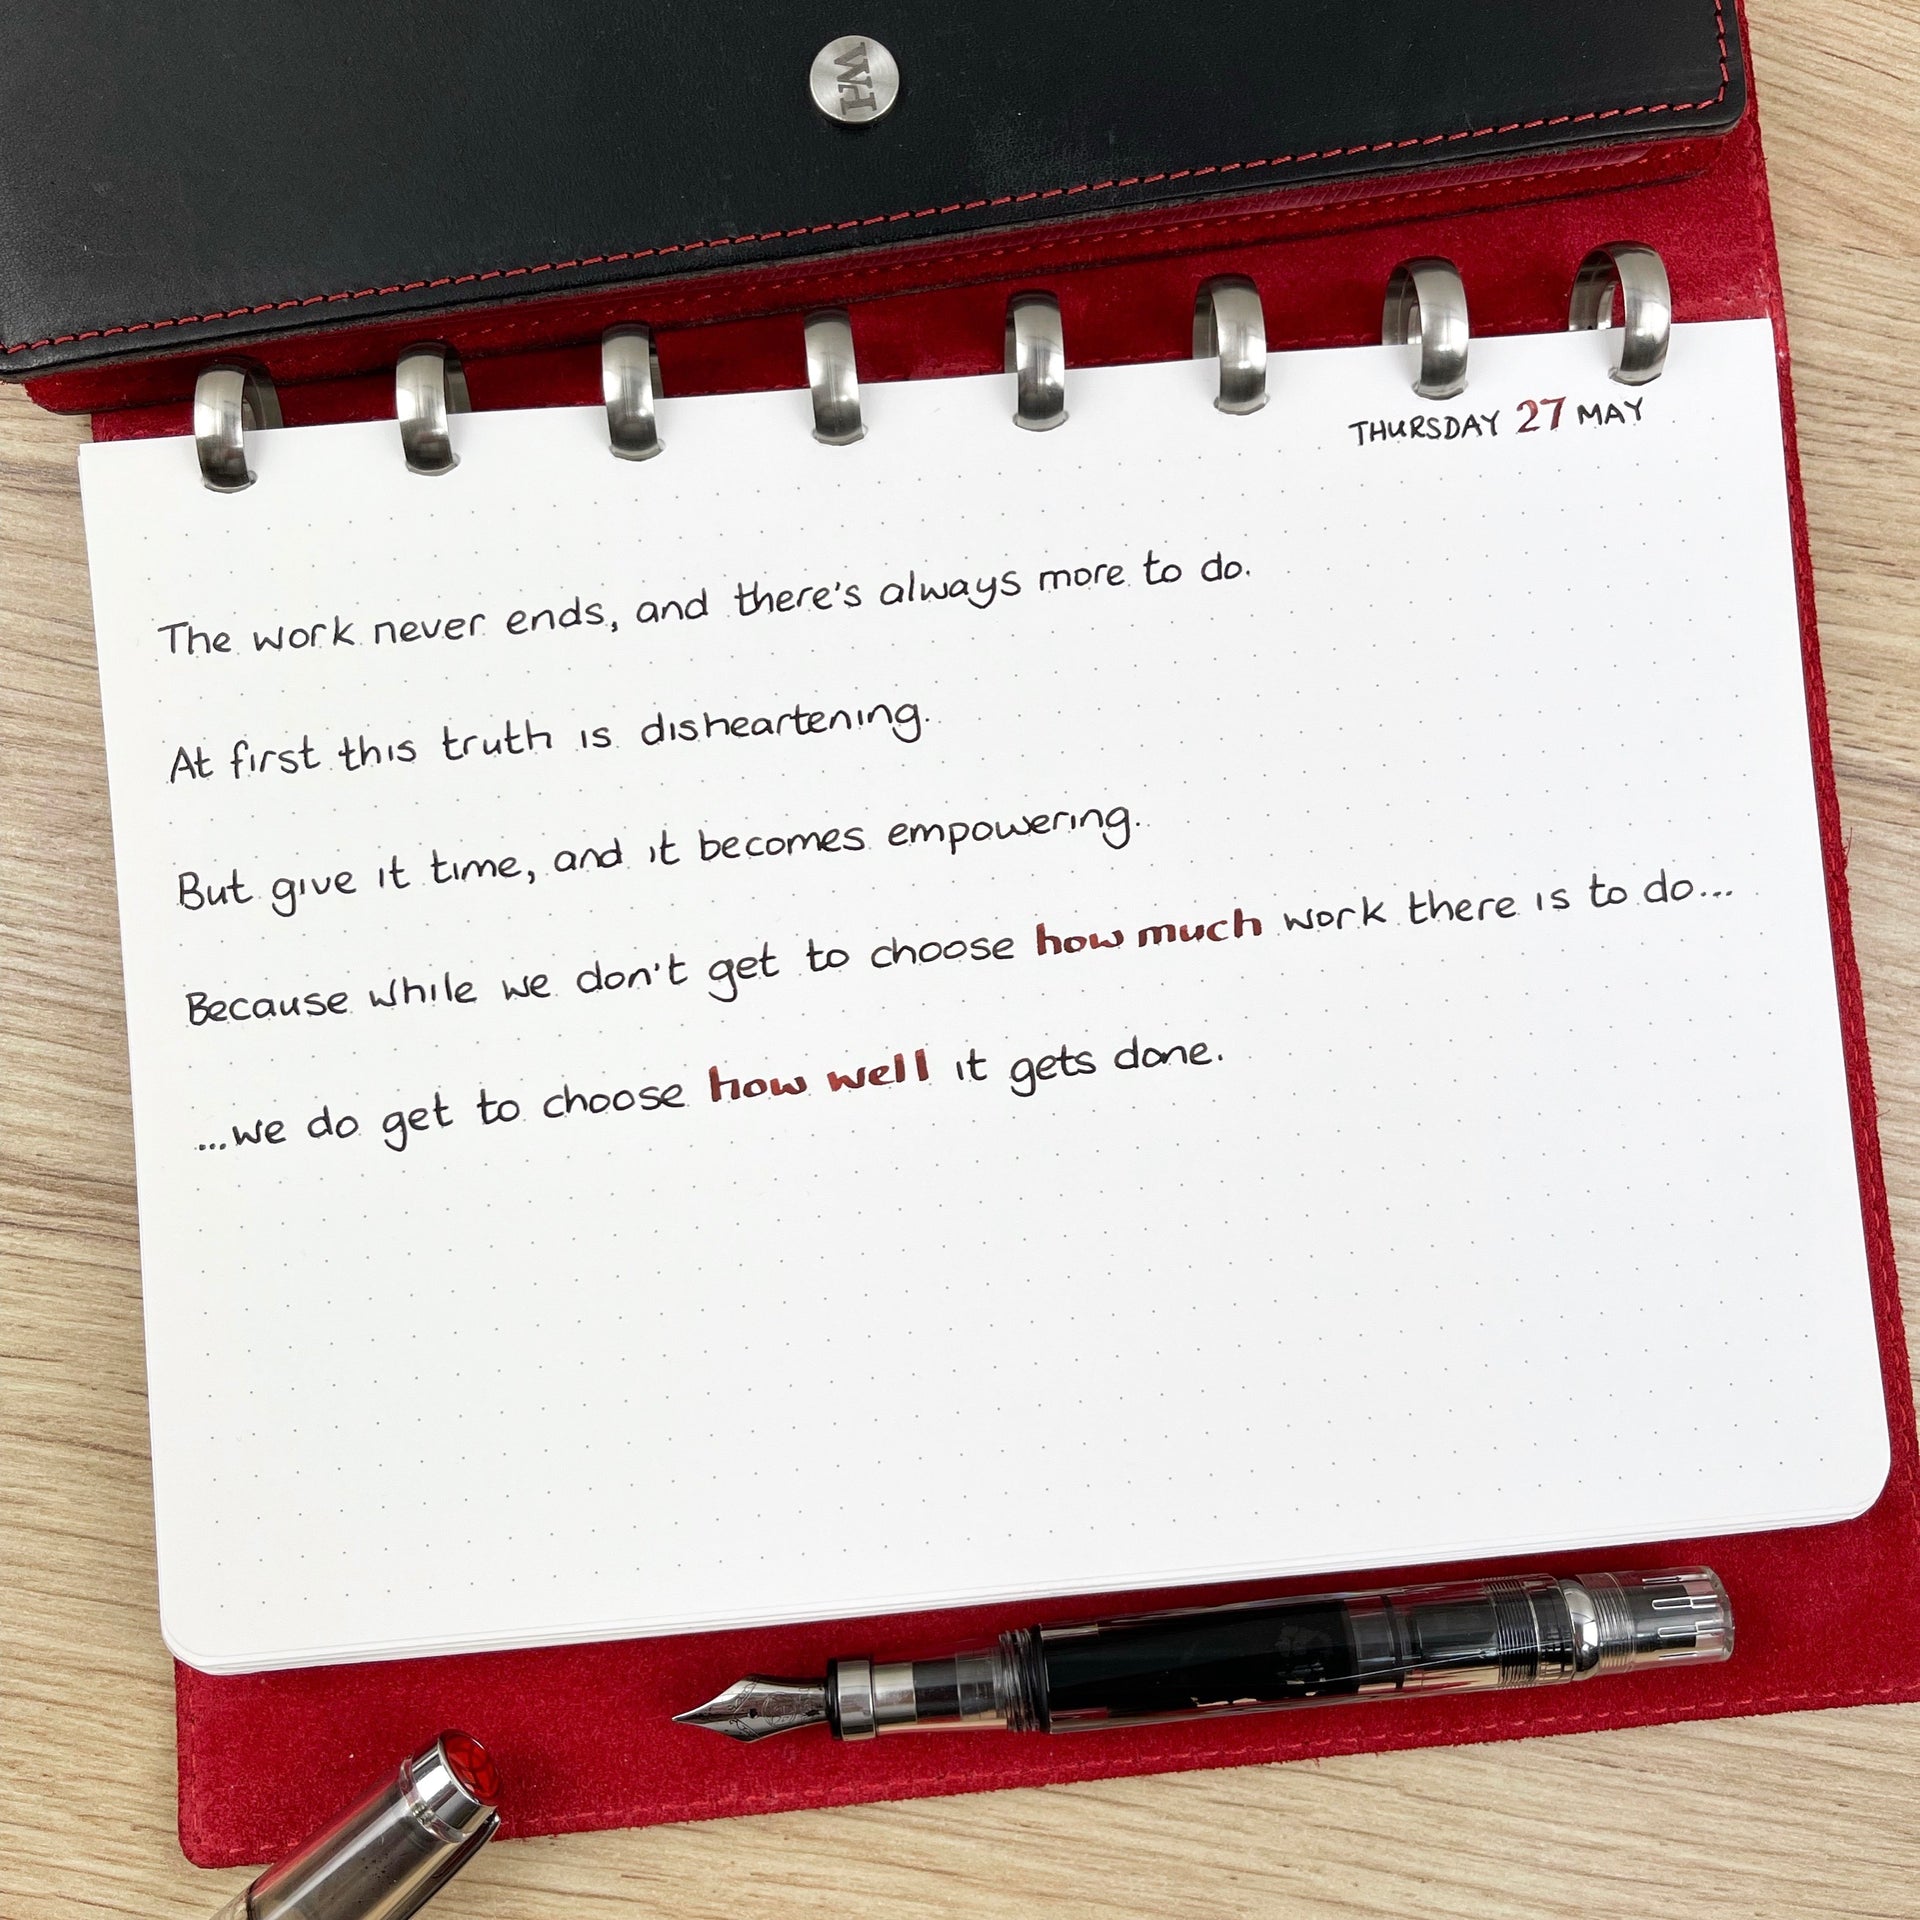 WH
THURSDAY 27 MAY
The work never ends, and there's always more to do.
At first this truth is disheartening.
But give it time, and it becomes empowering.
Because while we don't get to choose how much work there is to do...
...we do get to choose how well it gets done.